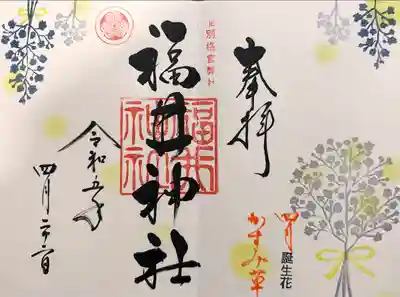 奉拝
旧別格官幣社
福井神社
福井
神社
令和五年
四月
四月
誕生花
かすみ草